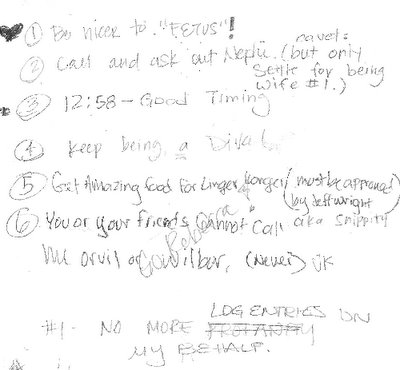 ① Be nicer to "FETUS"!
② Call and ask out Nephi. (but only
Settle for being
wife #1.)
③ 12:58 - Good Timing
④ Keep being a Diva
⑤ Get Amazing food for Linger Longer/ must be approved
(by Jeff Wright
⑥ You or your friends cannot call aka Snippity
Rebecca
me orvil or Gowilbur, (Never)
#1- NO MORE LOG ENTRIES ON
MY BEHALF.